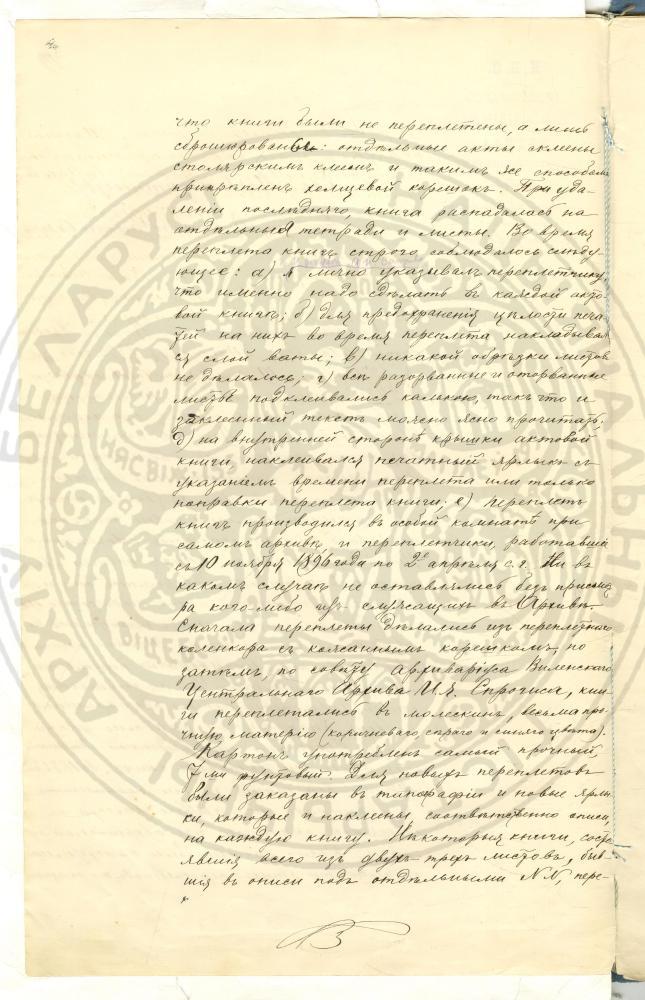 что книги были не переплетены, а лишь
сброшюрованы: отдѣльные акты склеены
столярскимъ клеемъ и такимъ же способомъ
прикрѣпленъ холщевой корешокъ. При уда-
леніи послѣдняго, книга распадалась на
отдѣльныя тетради и листы. Во время
переплета книгъ строго соблюдалось слѣду-
ющее: а) я лично указывалъ переплетчику,
что именно надо сдѣлать въ каждой акто-
вой книгѣ; б) для предохраненія цѣлости печа-
тей на нихъ во время переплета накладывал-
ся слой ваты; в) никакой обрѣзки листовъ
не дѣлалось; г) всѣ разорванные и оторванные
листы подклеивались калькою, такъ что и
заклееный текстъ можно ясно прочитать.
д) на внутренней сторонѣ крышки актовой
книги, наклеивался печатный ярлыкъ съ
указаніемъ времени переплета или только
поправки переплета книги; е) переплетъ
книгъ производился въ особой комнатѣ при
самомъ архивѣ и переплетчики, работавшіе
съ 10 ноября 1896 года по 2е апрѣля с. г. Ни въ
какомъ случаѣ не оставлялись безъ присмо-
ра кого-либо изъ служащихъ въ Архивѣ.
Сначала переплеты дѣлались изъ переплетнаго
коленкора съ кожаннымъ корешкомъ, по
затѣмъ, по совѣту Архиваріуса Виленскаго
Центральнаго Архива И. Я. Спрогиса, кни-
ги переплетались въ молескинъ, весьма про-
чную матерію (коричневаго, сѣраго и синяго цвѣта).
Картонъ употребленъ самый прочный,
7 ми фунтовый. Для новыхъ переплетовъ
были заказаны въ типографіи и новые ярлы-
ки, которые и наклеены, соотвѣтственно описи,
на каждую книгу. Нѣкоторыя книги, состо-
явшія всего изъ двухъ-трехъ листовъ, быв-
шія въ описи подъ отдѣльными NN, пере-